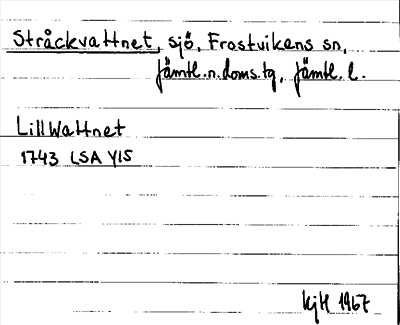 Stråckvattnet, sjö, Frostvikens sn,
Jämtl.n.doms.tg, Jämtl. l.
LillWattnet
1743 LSA Y15
KjH 1967